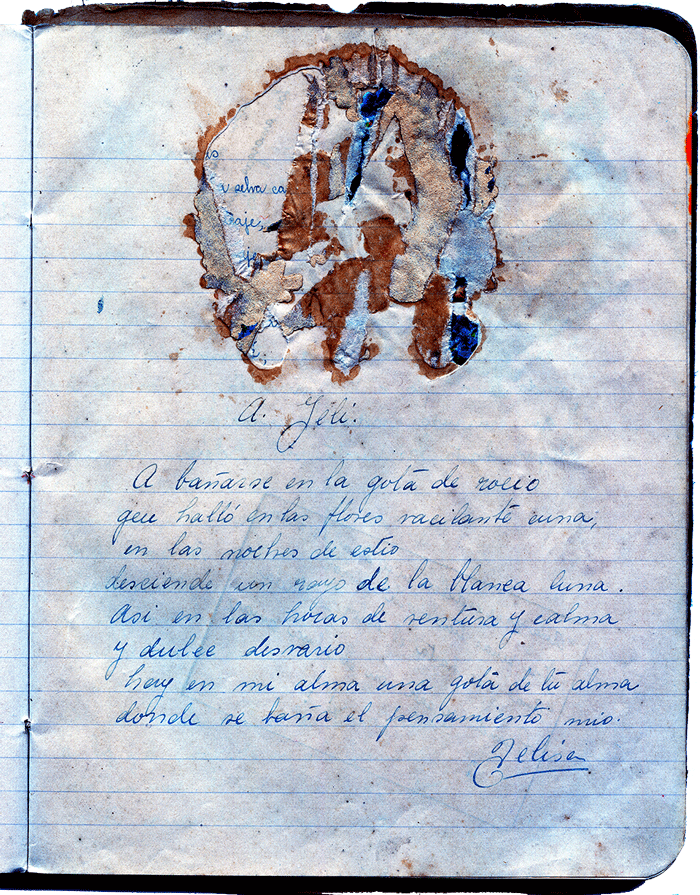 is
selva ca
aje,
A. Feli.
A bañarse en la gota de rocio
que halló en las flores vacilante cuna,
en las noches de estio
desciende un rayo de la blanca luna.
Asi en las horas de ventura y calma
y dulce desvario
hay en mi alma una gota de tú alma
donde se baña el pensamiento mio.
Felisa